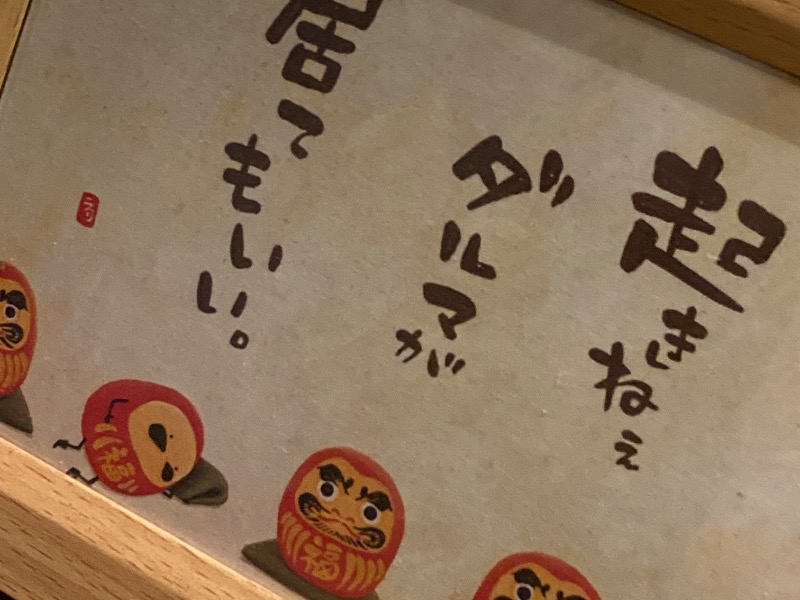 起きねぇ
ダルマが
居てもいい。
福
福